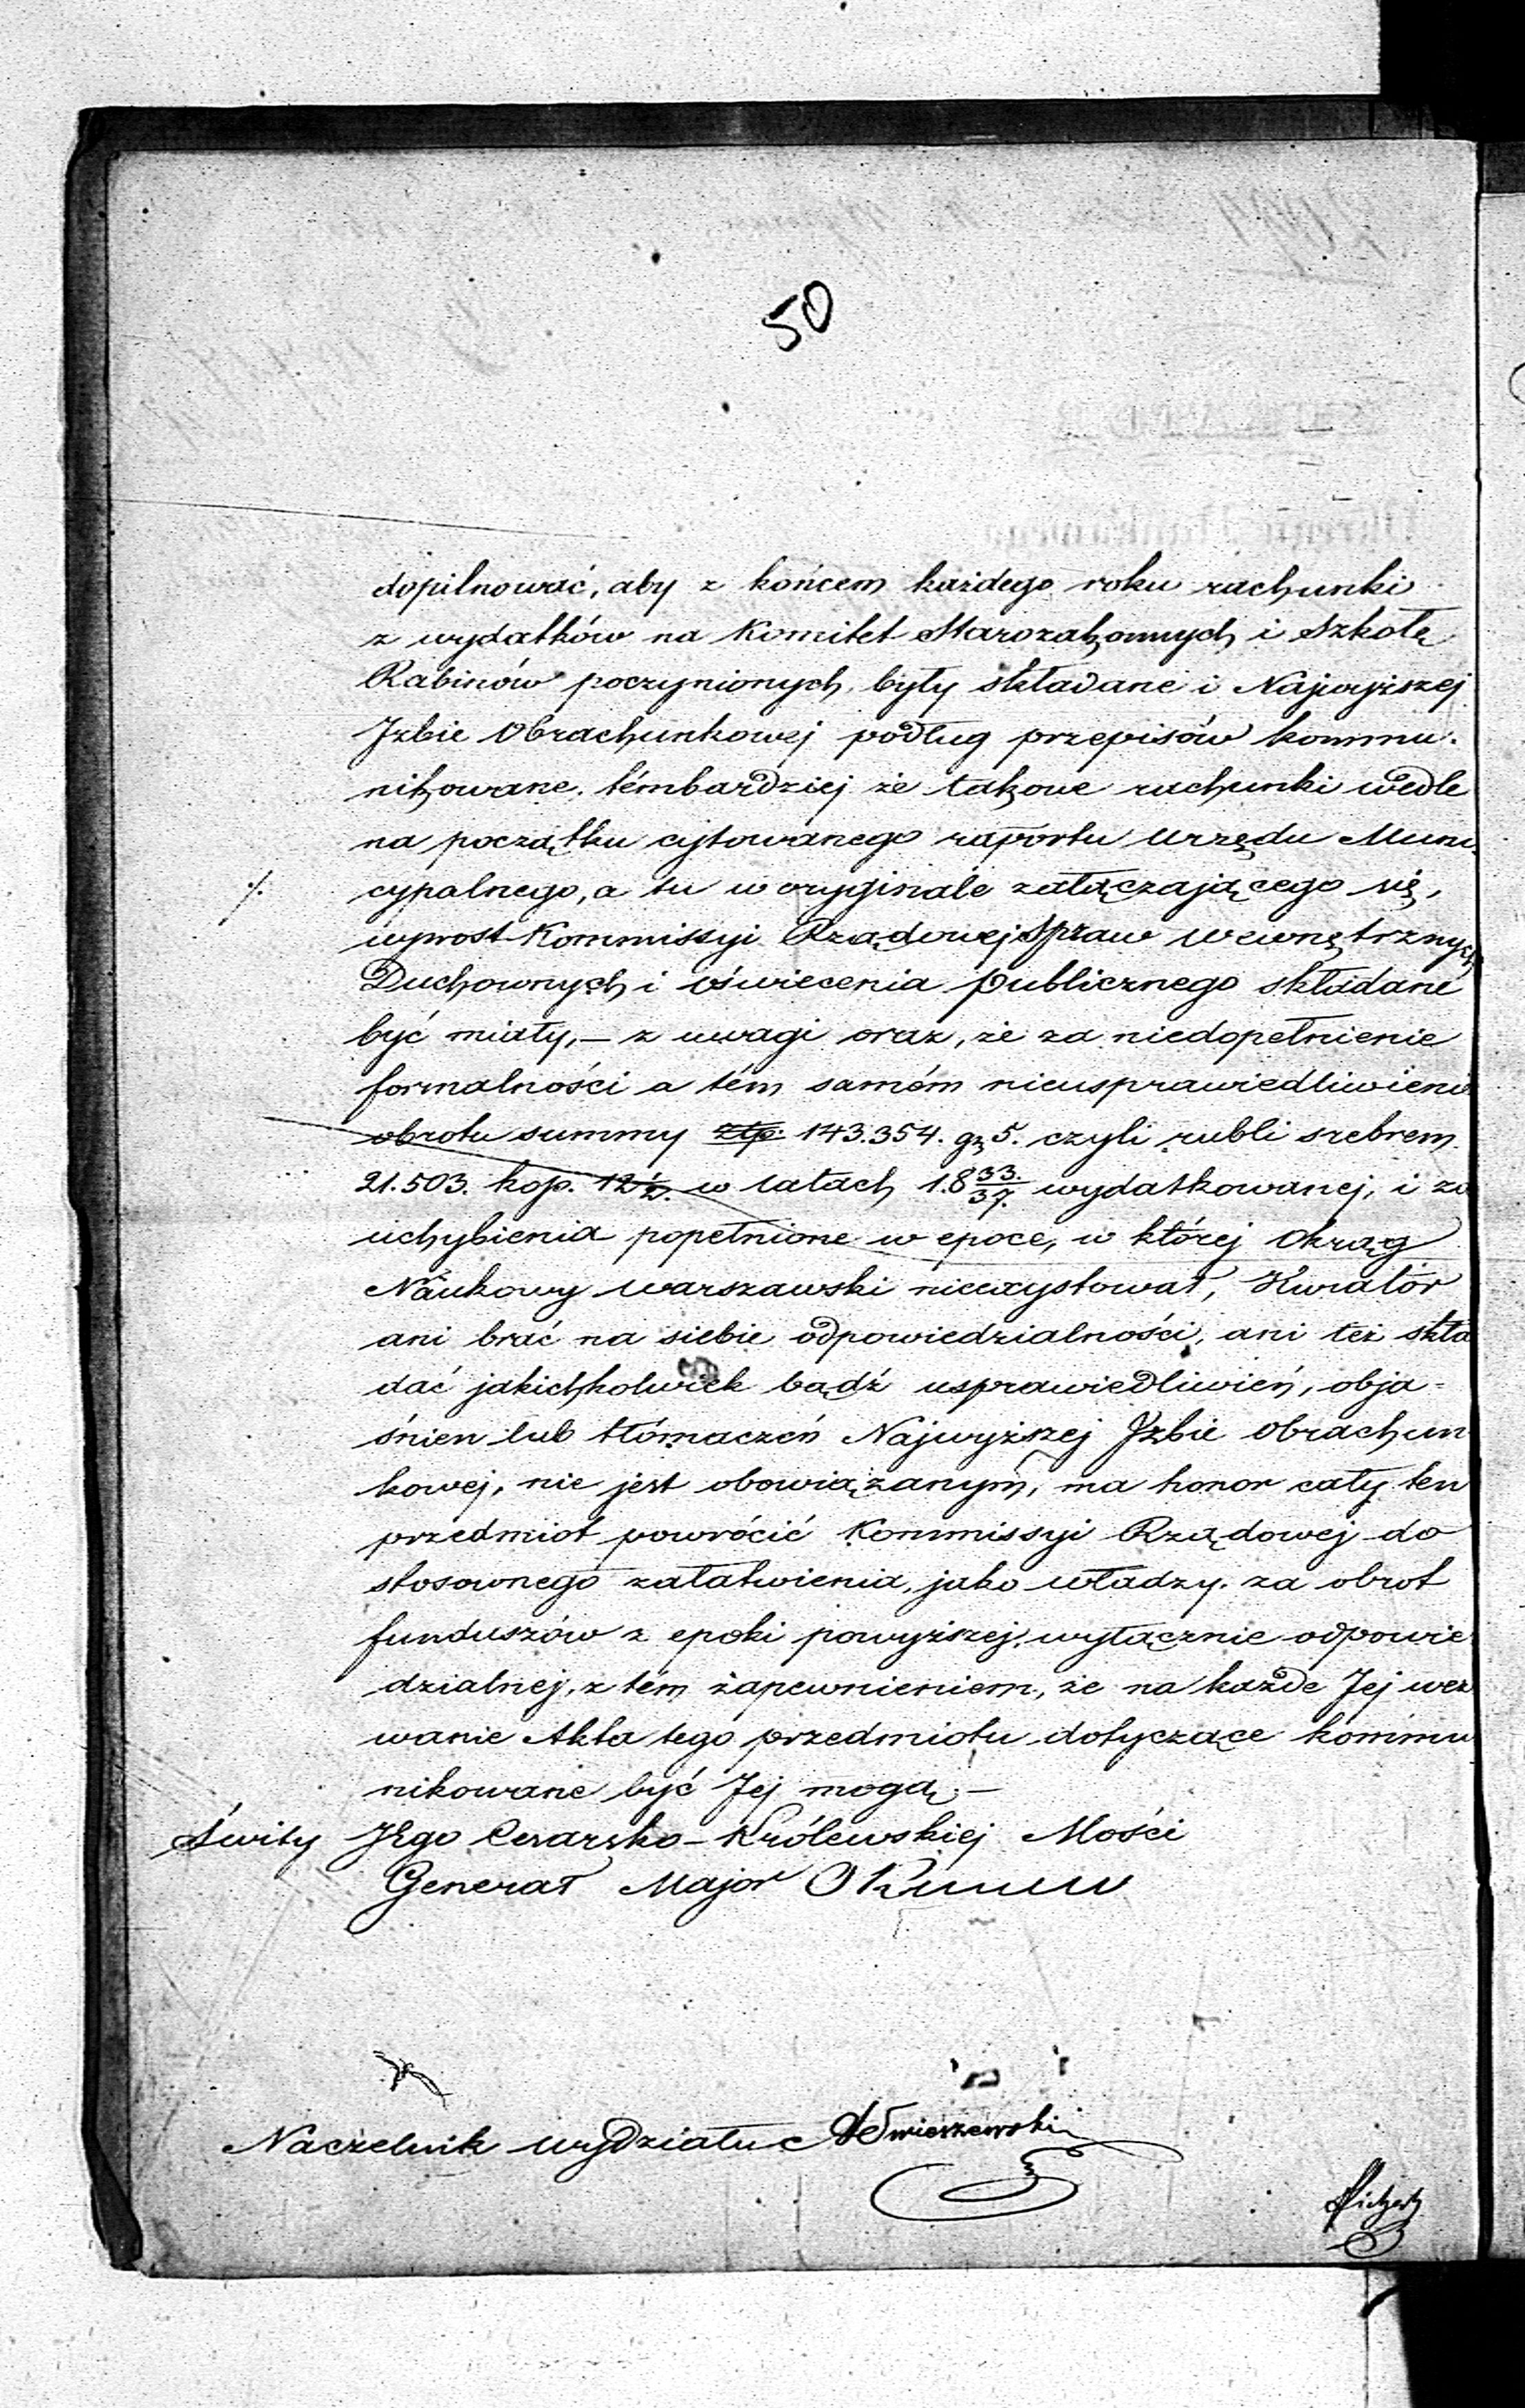 50
dopilnować, aby z końcem każdego roku rachunki
z wydatków na Komitet Starozakonnych i Szkołę
Rabinów poczynionych, były składane i Najwyższej
Izbie Obrachunkowej podług przepisów kommu-
nikowane, témbardziej że takowe rachunki wedle
na początku cytowanego raportu Urzędu Muni-
cypalnego, a tu w oryginale załączającego się,
wprost Kommissyi Rządowej Spraw Wewnętrznych
Duchownych i Oświecenia Publicznego składane
być miały, — z uwagi oraz, że za niedopełnienie
formalności a tém samém nieusprawiedliwienie
obrotu summy złp. 143.354. gr 5. czyli rubli srebrem
21.503. kop. 12½. w latach 18 33/37. wydatkowanej, i za
uchybienia popełnione w epoce, w której Okrąg
Naukowy Warszawski nieexystował, Kurator
ani brać na siebie odpowiedzialności, ani też skła
dać jakichkolwiek bądź usprawiedliwień, obja=
śnien lub tłómaczeń Najwyższej Izbie Obrachun
kowej, nie jest obowiązanym, ma honor cały ten
przedmiot powrócić Kommissyi Rządowej do
stosownego załatwienia, jako władzy za obrot
funduszów z epoki powyższej, wyłącznie odpowie
dzialnej, z tém zapewnieniem, że na każde Jej wez
wanie Akta tego przedmiotu dotyczące kommu
nikowane być Jej mogą. —
Świty Jego Cesarsko-Królewskiej Mości
Generał Major Okunew
Naczelnik Wydziału